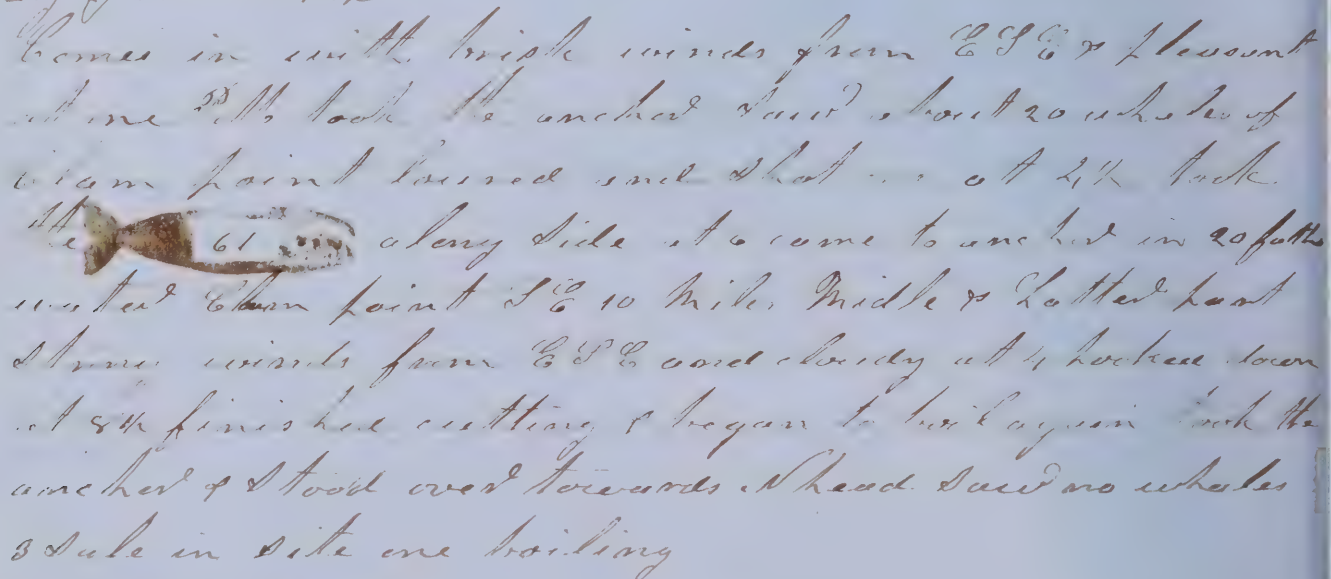 Comes in with brisk winds from ESE & plesant
at one PM took the ancher saw about 20 whales of
point lowred and at took
the 61 along side at 6 come to ancher in 20 fath
water point SE 10 Miles Midle & Latter part
strong winds from ESE and cloudy at 4 hooked down
at finished cutting & began to boil again took the
ancher & Stood over towards N head Saw no whales
3 Sale in site one boiling